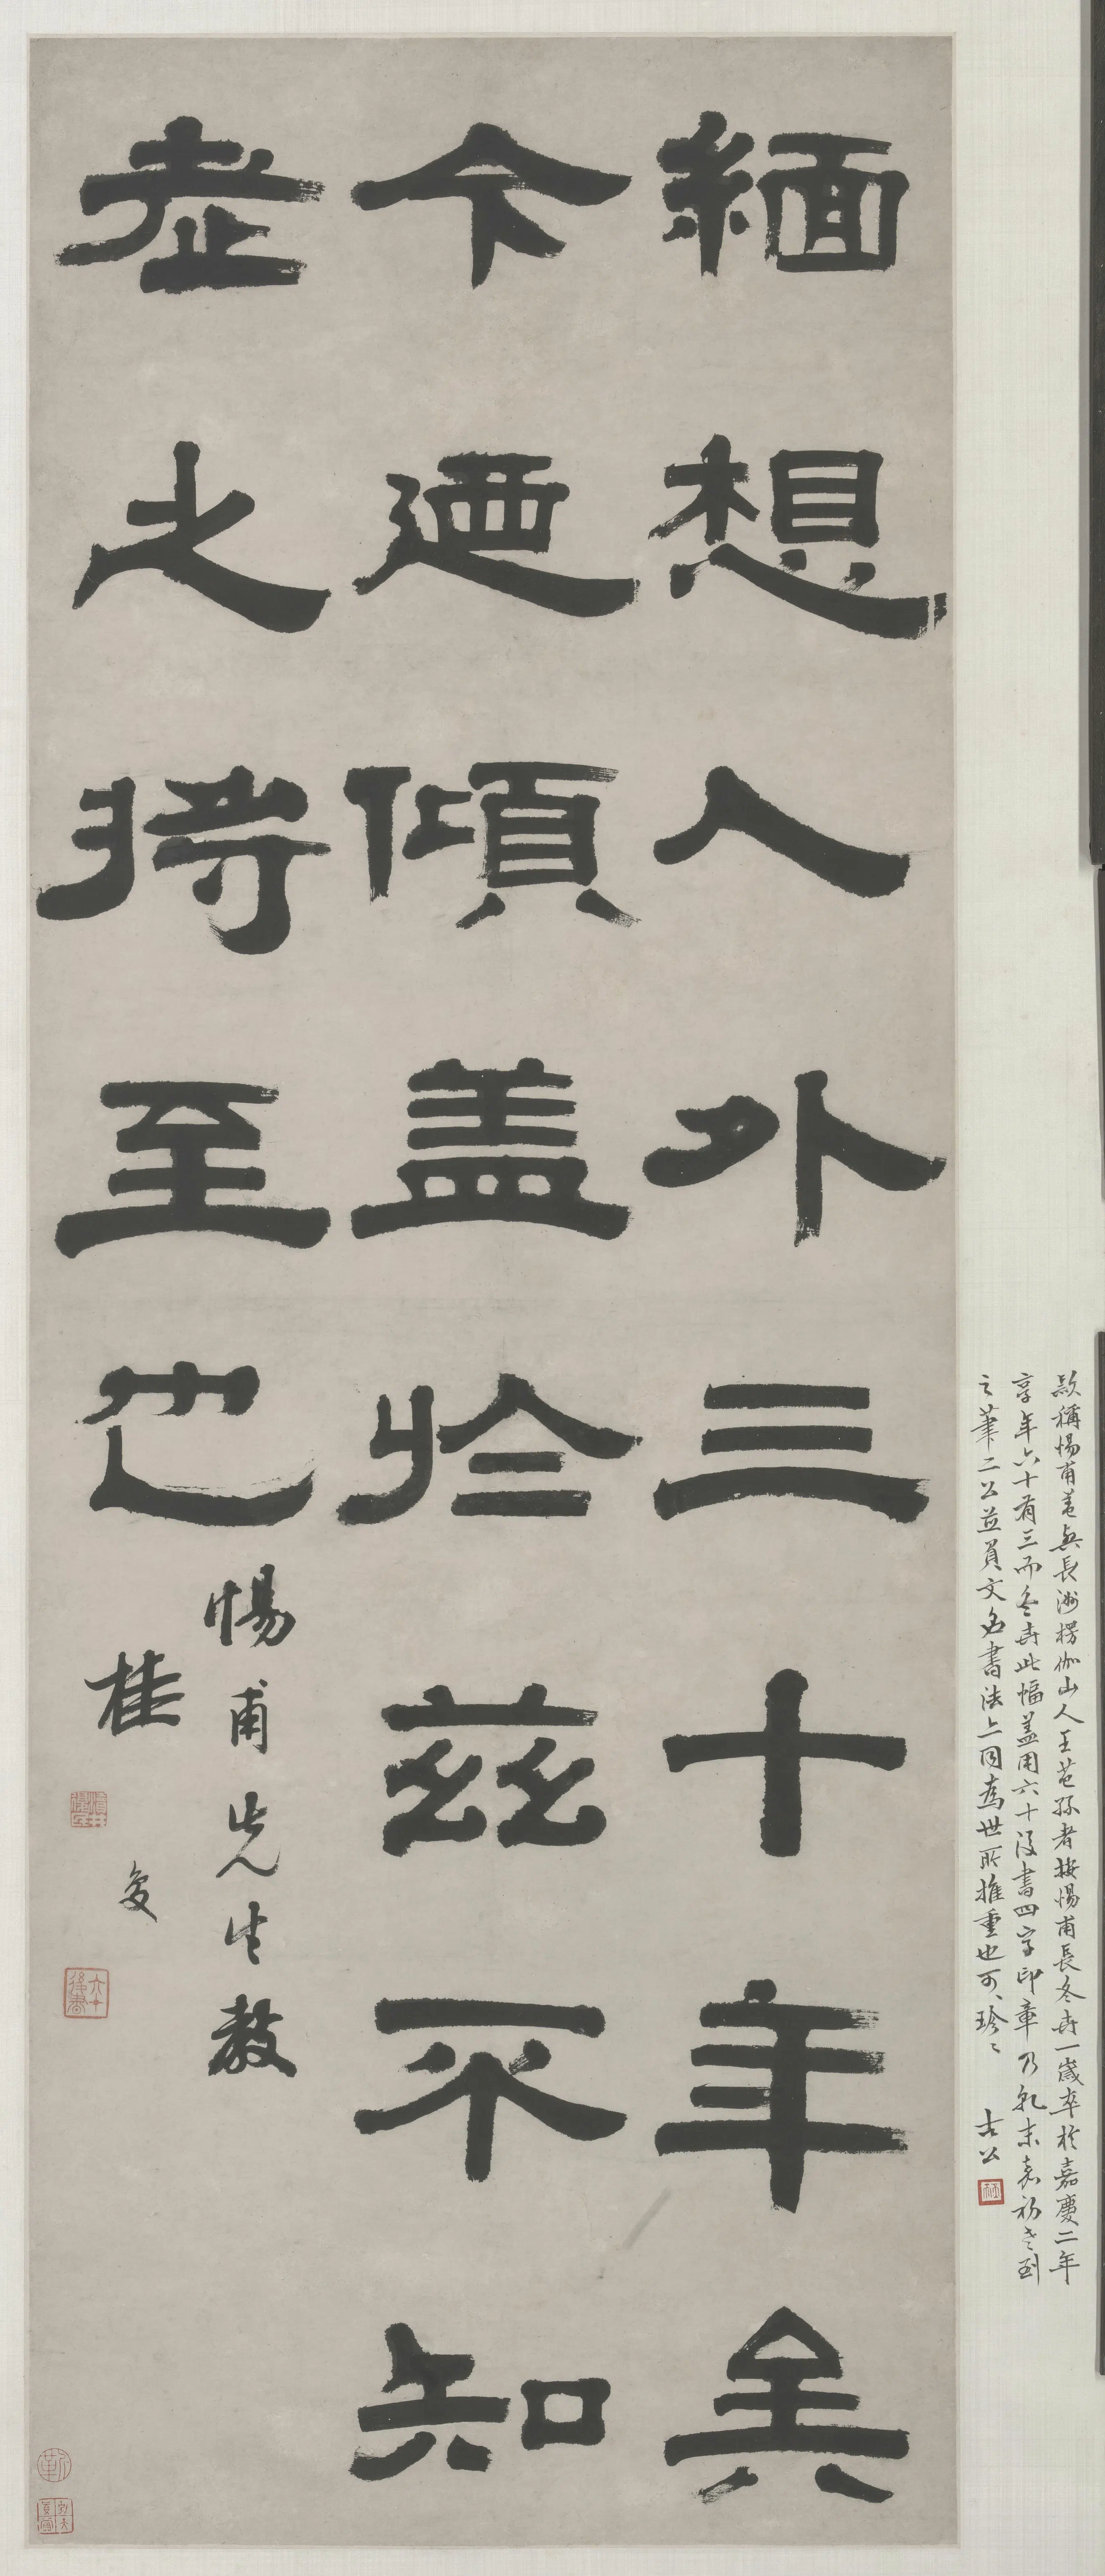 款稱惕甫蓋與長洲楞伽山人王芑孫者按惕甫長冬卉一歲卒於嘉慶二年
享年六十有三而冬卉此幅蓋用六十後書四字印章乃乾末嘉初老到
之筆二公並負文名書法上同為世所推重也可珍 古公
緬想人外三十年矣
今迺傾盖於茲不知
老之將至也
惕甫先生教
桂馥
六十後書